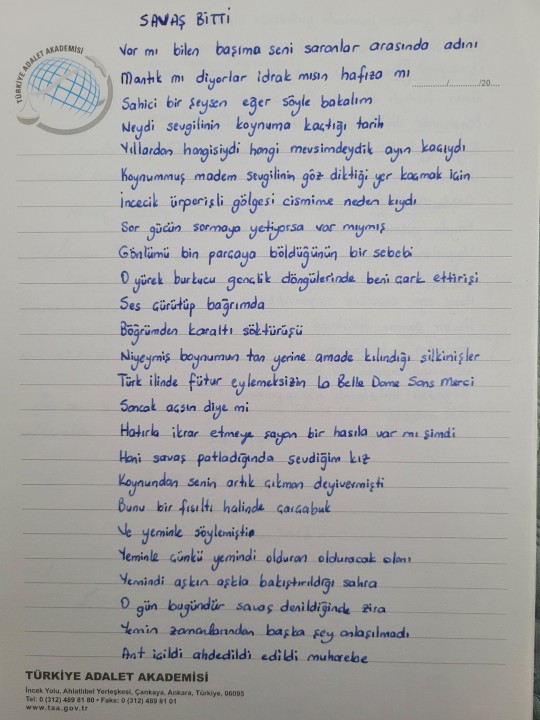 SAVAŞ BİTTİ
TÜRKİYE ADALET AKADEMİSİ
Var mı bilen başıma seni saranlar arasında adını
Mantık mı diyorlar idrak mısın hafıza mı
............/............/20....
Sahici bir şeysen eğer söyle bakalım
Neydi sevgilinin koynuma kaçtığı tarih
Yıllardan hangisiydi hangi mevsimdeydik ayın kaçıydı
Koynummuş madem sevgilinin göz diktiği yer kaçmak için
İncecik ürperişli gölgesi cismime neden kıydı
Sor gücün sormaya yetiyorsa var mıymış
Gönlümü bin parçaya böldüğünün bir sebebi
O yürek burkucu gençlik döngülerinde beni çark ettirişi
Ses çürütüp bağrımda
Böğrümden karaltı söktürüşü
Niyeymiş boynumun tan yerine amade kılındığı silkinişler
Türk ilinde fütur eylemeksizin La Belle Dame Sans Merci
Sancak açsın diye mi
Hatırla ikrar etmeye şayan bir hasıla var mı şimdi
Hani savaş patladığında sevdiğim kız
Koynundan senin artık çıkmam deyivermişti
Bunu bir fısıltı halinde çarçabuk
Ve yeminle söylemişti
Yeminle çünkü yemindi olduran olduracak olanı
Yemindi aşkın aşkla bakıştırıldığı sahra
O gün bugündür savaş denildiğinde zira
Yemin zamanlarından başka şey anlaşılmadı
Ant içildi ahdedildi edildi muharebe
TÜRKİYE ADALET AKADEMİSİ
İncek Yolu, Ahlatlıbel Yerleşkesi, Çankaya, Ankara, Türkiye, 06095
Tel: 0 (312) 489 81 80 • Faks: 0 (312) 489 81 01
www.taa.gov.tr